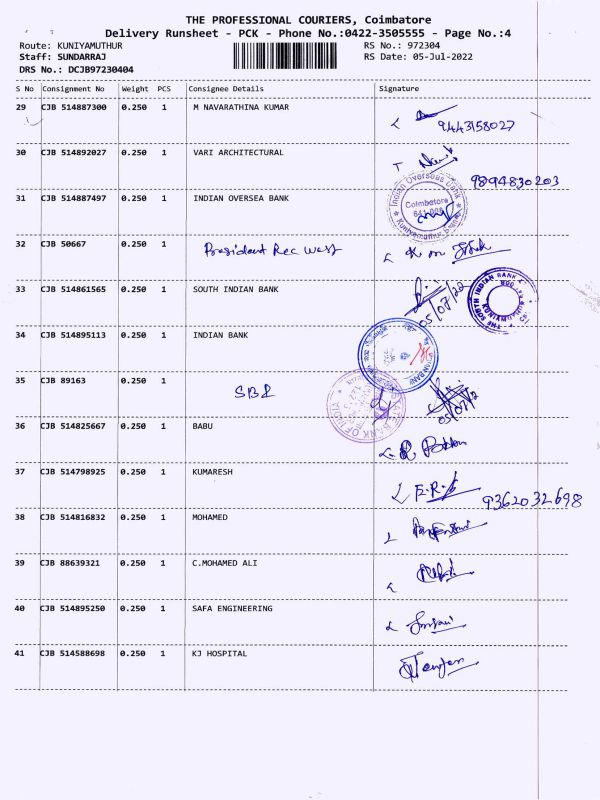 THE PROFESSIONAL COURIERS, Coimbatore
Delivery Runsheet - PCK - Phone No.:0422-3505555 - Page No.:4
Route: KUNIYAMUTHUR RS No.: 972304
Staff: SUNDARRAJ RS Date: 05-Jul-2022
DRS No.: DCJB97230404
S No Consignment No Weight PCS Consignee Details Signature
29 CJB 514887300 0.250 1 M NAVARATHINA KUMAR
9443158027
30 CJB 514892027 0.250 1 VARI ARCHITECTURAL
9894830203
31 CJB 514887497 0.250 1 INDIAN OVERSEA BANK
Indian Overseas Bank
Coimbatore
641 008
Kuniyamuthur Branch
32 CJB 50667 0.250 1 President Rec West
33 CJB 514861565 0.250 1 SOUTH INDIAN BANK
05/07/22
THE SOUTH INDIAN BANK
34 CJB 514895113 0.250 1 INDIAN BANK
35 CJB 89163 0.250 1 SBI
STATE BANK OF INDIA
36 CJB 514825667 0.250 1 BABU
37 CJB 514798925 0.250 1 KUMARESH
9362032698
38 CJB 514816832 0.250 1 MOHAMED
39 CJB 88639321 0.250 1 C.MOHAMED ALI
40 CJB 514895250 0.250 1 SAFA ENGINEERING
41 CJB 514588698 0.250 1 KJ HOSPITAL